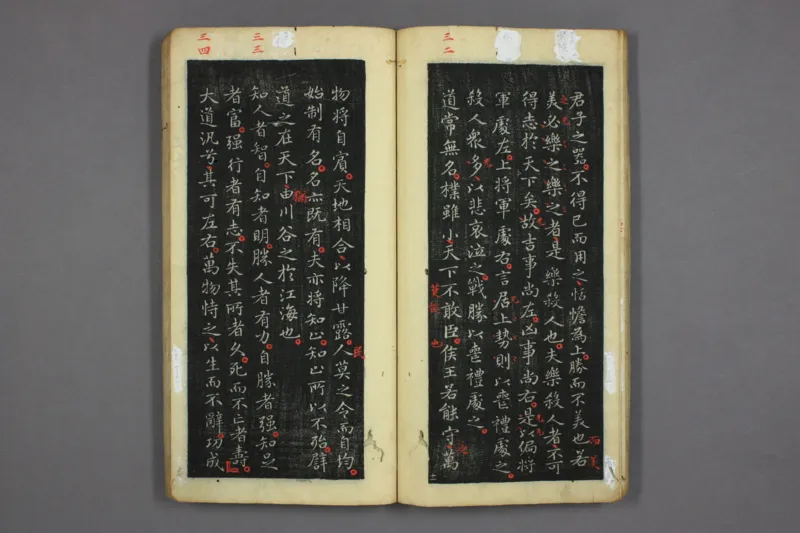 三二
君子之器不得已而用之恬憺為上勝而不美也若
而美
美必樂之樂之者是樂殺人也夫樂殺人者不可
得志於天下矣故吉事尚左凶事尚右是以偏將
軍處左上將軍處右言居上勢則以喪禮處之
殺人眾多以悲哀泣之戰勝以喪禮處之
道常無名樸雖小天下不敢臣侯王若能守萬
莫能
也
三三
三四
物將自賓天地相合以降甘露人莫之令而自均
民
始制有名名亦既有夫亦將知止知止所以不殆譬
道之在天下由川谷之於江海也
猶
知人者智自知者明勝人者有力自勝者強知足
者富強行者有志不失其所者久死而不亡者壽
大道汎兮其可左右萬物恃之以生而不辭功成